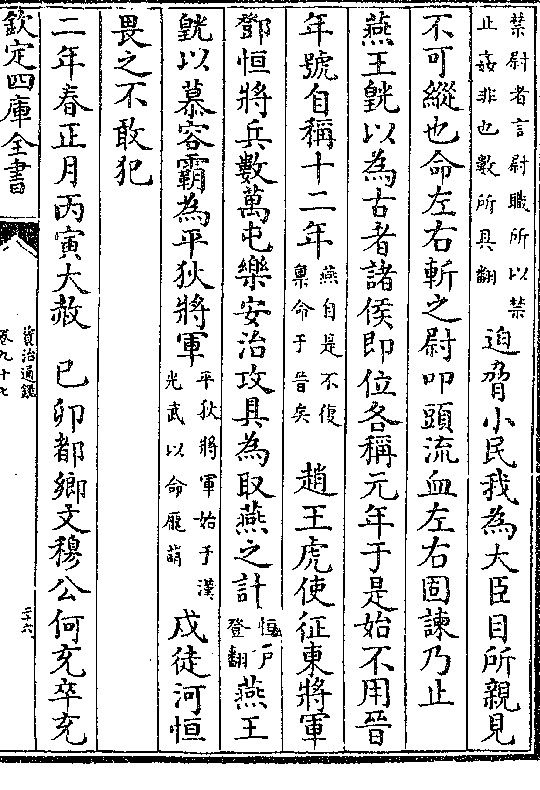 禁尉者言尉職所以禁
止姦非也數所具翻
迫脅小民我為大臣目所親見
不可縱也命左右斬之尉叩頭流血左右固諫乃止
燕王皝以為古者諸侯即位各稱元年于是始不用晉
年號自稱十二年
燕自是不復
稟命于晉矣
趙王虎使征東將軍
鄧恒將兵數萬屯樂安治攻具為取燕之計
恒戶
登翻
燕王
皝以慕容霸為平狄將軍
平狄將軍始于漢
光武以命龐萌
戍徒河恒
畏之不敢犯
二年春正月丙寅大赦 己卯都鄉文穆公何充卒充
欽定四庫全書
資治通鑑
卷九十七
三六